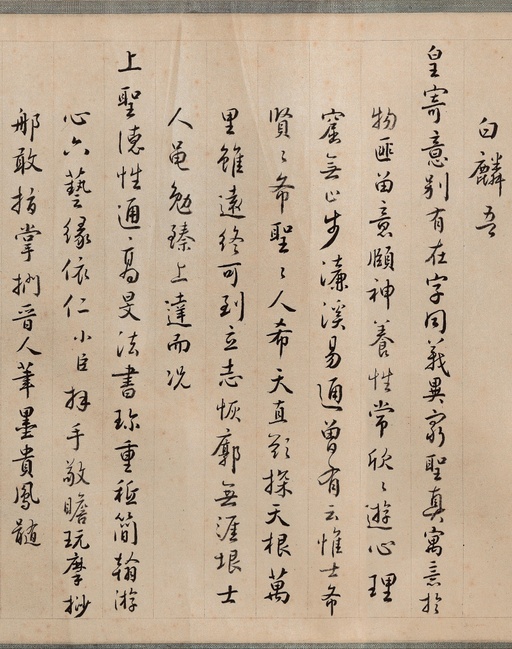 白麟吾
皇寄意别有在字同義異窮聖真寓意於
物匪留意頤神養性常欣〻遊心理
窟無止步濂溪易通曾有云惟士希
賢〻希聖〻人希天直欲探天根萬
里雖遠終可到立志恢廓無涯垠士
人黽勉臻上達而况
上聖德性通高旻法書珍重祗簡翰游
心六藝緣依仁小臣拜手敬瞻玩摩挱
那敢指掌捫晉人筆墨貴鳳髓